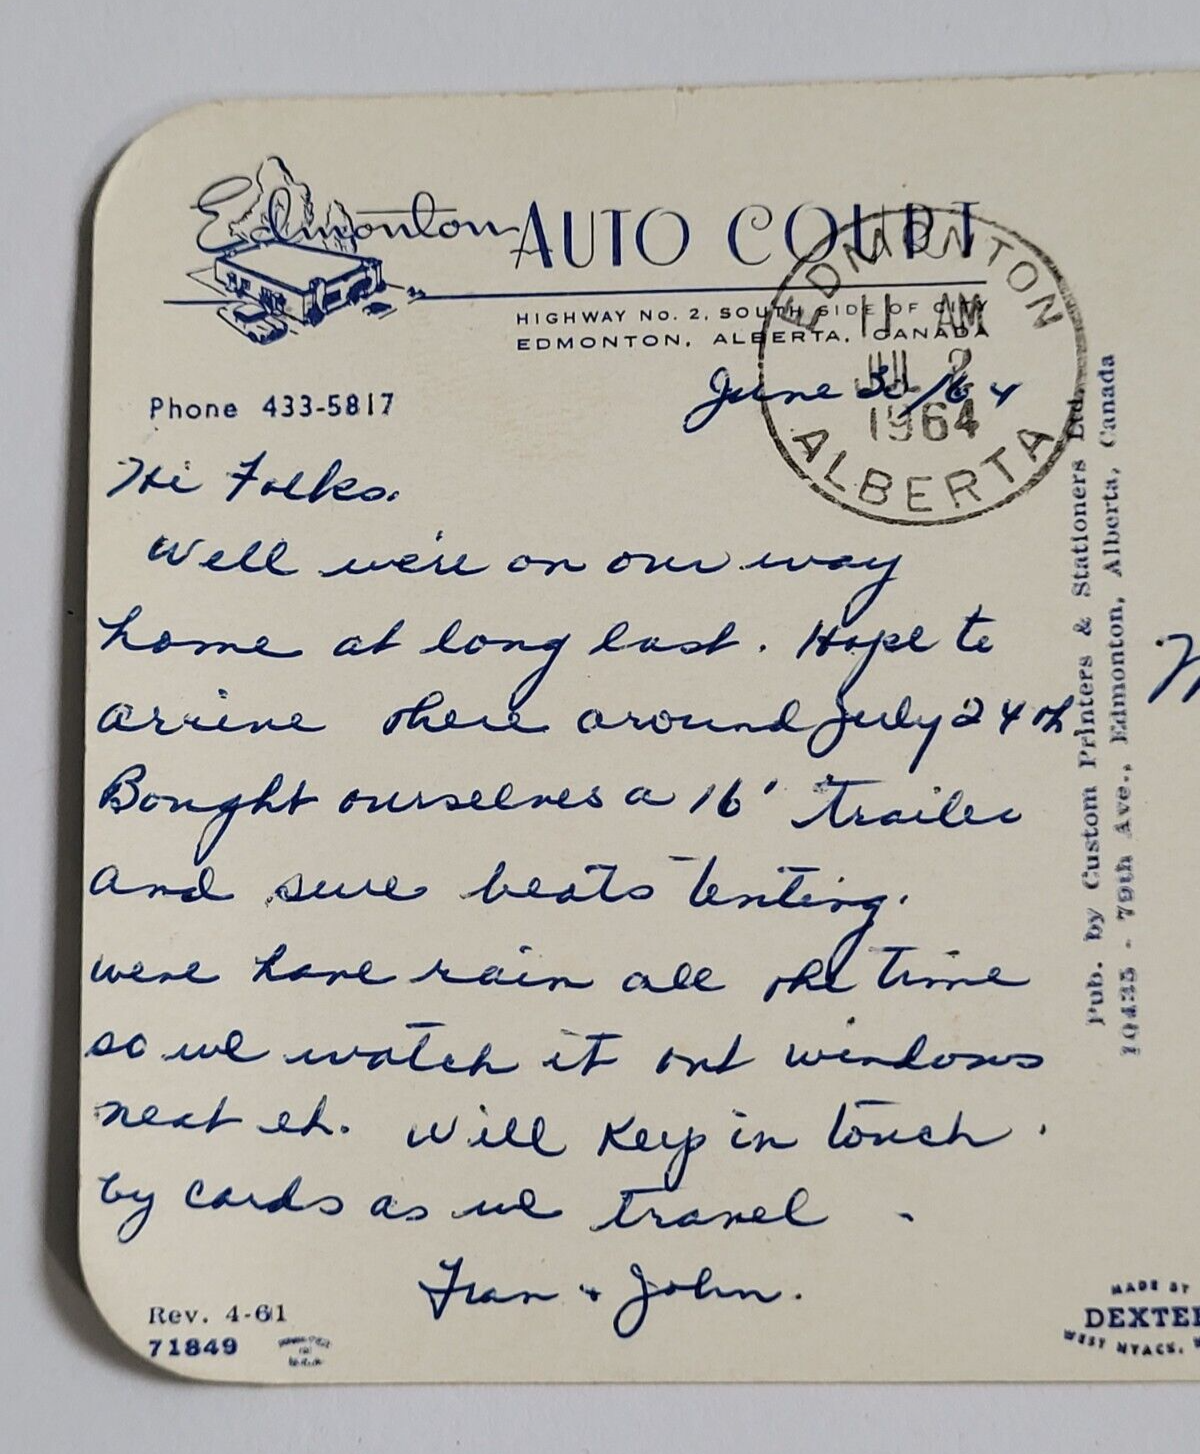 Edmonton AUTO COURT
HIGHWAY No. 2, SOUTH SIDE OF CITY
EDMONTON, ALBERTA, CANADA
EDMONTON
11 AM
JUL 2
1964
ALBERTA
Phone 433-5817
June 30/64
Hi Folks.
Well we're on our way
home at long last. Hope to
arrive there around July 24th
Bought ourselves a 16' trailer
and sure beats tenting.
were have rain all the time
so we watch it out windows
neat eh. Will Keep in touch.
by cards as we travel.
Fran + John.
Rev. 4-61
71849
Pub. by Custom Printers & Stationers Ltd.
10435 - 79th Ave., Edmonton, Alberta, Canada
MADE BY
DEXTER
WEST NYACK,